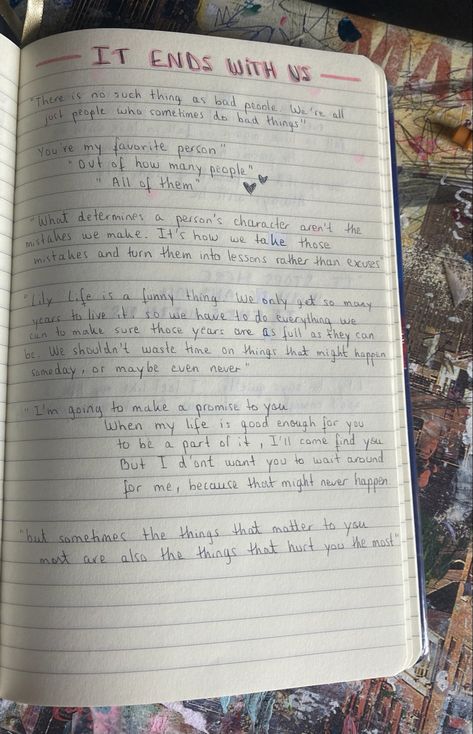 IT ENDS WITH US
"There is no such thing as bad people. We're all
just people who sometimes do bad things"
You're my favorite person"
"Out of how many people"
"All of them"
"What determines a person's character aren't the
mistakes we make. It's how we take those
mistakes and turn them into lessons rather than excuses"
"Lily Life is a funny thing. We only get so many
years to live it, so we have to do everything we
can to make sure those years are as full as they can
be. We shouldn't waste time on things that might happen
someday, or maybe even never"
"I'm going to make a promise to you
When my life is good enough for you
to be a part of it, I'll come find you
But I d'ont want you to wait around
for me, because that might never happen
"but sometimes the things that matter to you
most are also the things that hurt you the most"